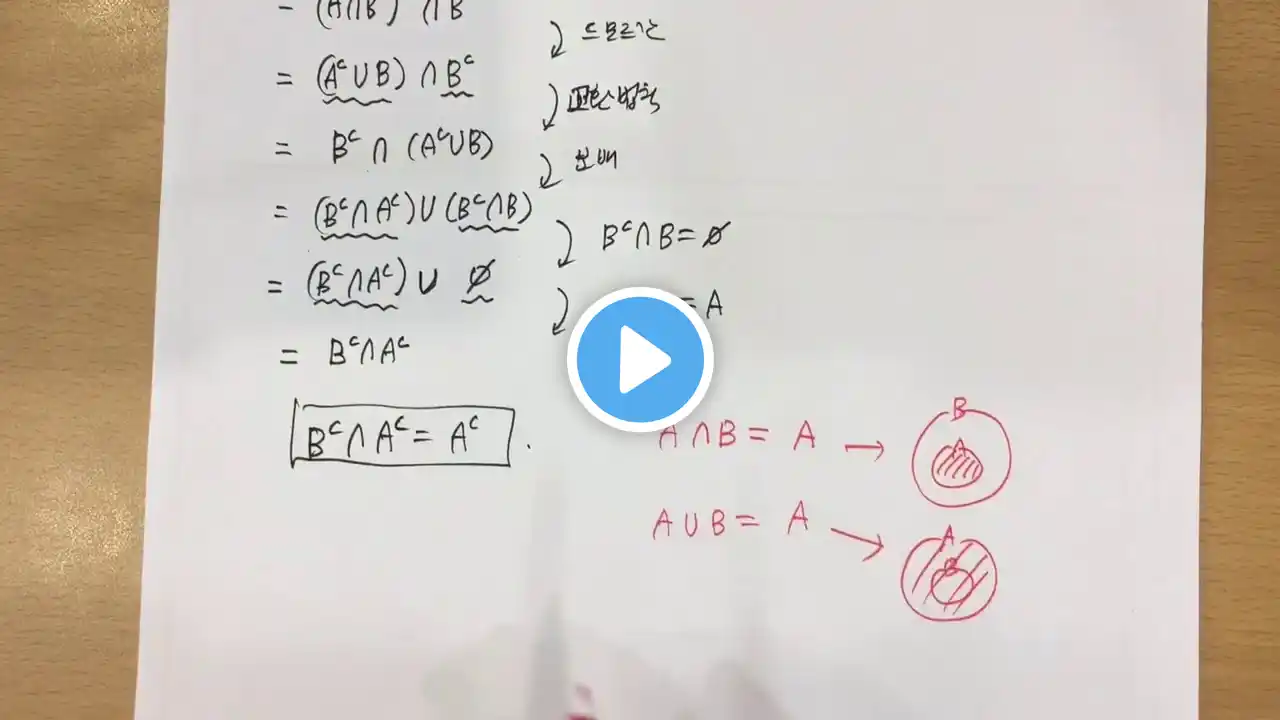 = (A∩B ) ∩ B
드모르간
= (Aᶜ∪B) ∩ Bᶜ
= Bᶜ ∩ (Aᶜ∪B)
분배
= (Bᶜ∩Aᶜ)∪(Bᶜ∩B)
Bᶜ∩B=∅
= (Bᶜ∩Aᶜ)∪ ∅
= A
= Bᶜ∩Aᶜ
Bᶜ∩Aᶜ = Aᶜ .
A∩B = A →
B
A
A∪B = A →
A
B